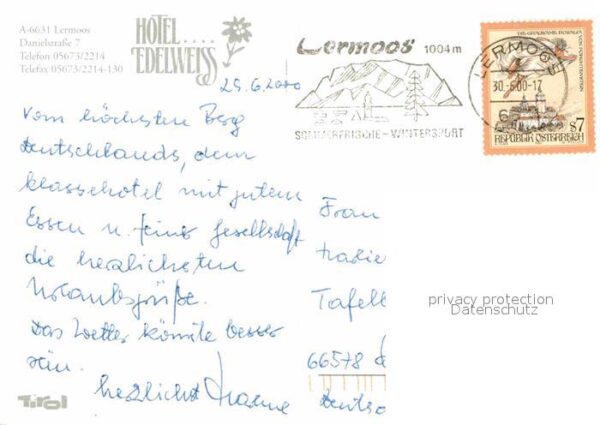 A-6631 Lermoos
Danielstraße 7
Telefon 05673/2214
Telefax 05673/2214-130
HOTEL ....
EDELWEISS
29.6.2000
Vom höchsten Berg
Deutschlands, dem
Klassehotel mit gutem
Essen u. feine Gesellschaft
die herzlichsten
Urlaubsgrüße.
Das Wetter könnte besser
sein.
herzlichst
Tirol
Lermoos 1004 m
SOMMERFRISCHE-WINTERSPORT
LERMOOS
30.-6.00-17
S7
REPUBLIK ÖSTERREICH
Frau
Tafel
66578
Deutsc
privacy protection
Datenschutz